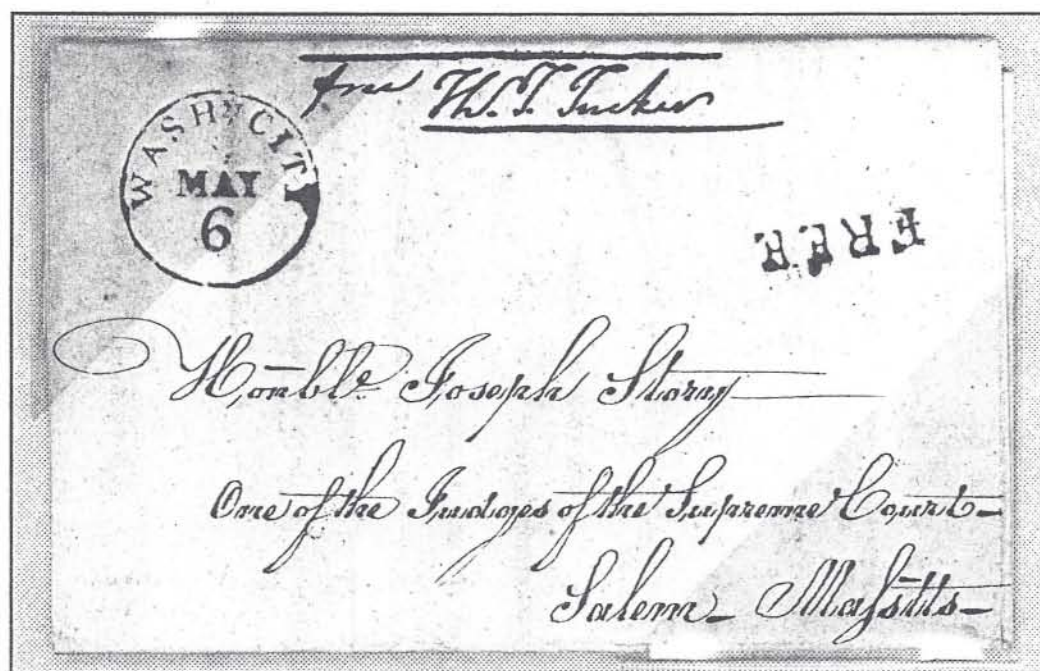 free Th. T. Tucker
WASHN CITY
MAY
6
FREE
Honble. Joseph Story
One of the Judges of the Supreme Court
Salem - Masstts -